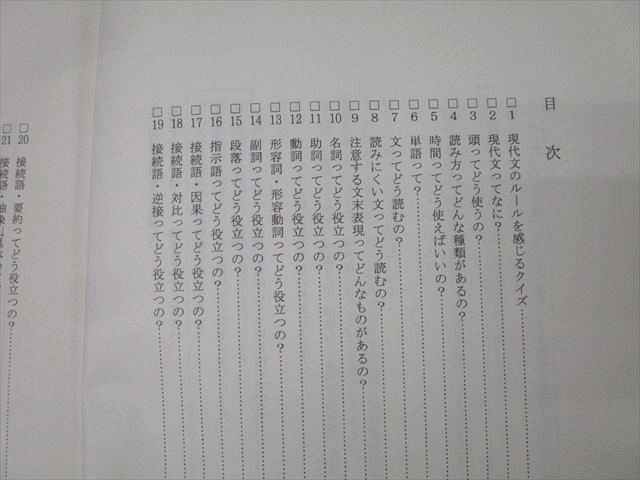 目次
□1 現代文のルールを感じるクイズ
□2 現代文ってなに？
□3 頭ってどう使うの？
□4 読み方ってどんな種類があるの？
□5 時間ってどう使えばいいの？
□6 単語って？
□7 文ってどう読むの？
□8 読みにくい文ってどう読むの？
□9 注意する文末表現ってどんなものがあるの？
□10 名詞ってどう役立つの？
□11 助詞ってどう役立つの？
□12 動詞ってどう役立つの？
□13 形容詞・形容動詞ってどう役立つの？
□14 副詞ってどう役立つの？
□15 段落ってどう役立つの？
□16 指示語ってどう役立つの？
□17 接続語・因果ってどう役立つの？
□18 接続語・対比ってどう役立つの？
□19 接続語・逆接ってどう役立つの？
□20 接続語・要約ってどう役立つの？
□21 接続語・抽象